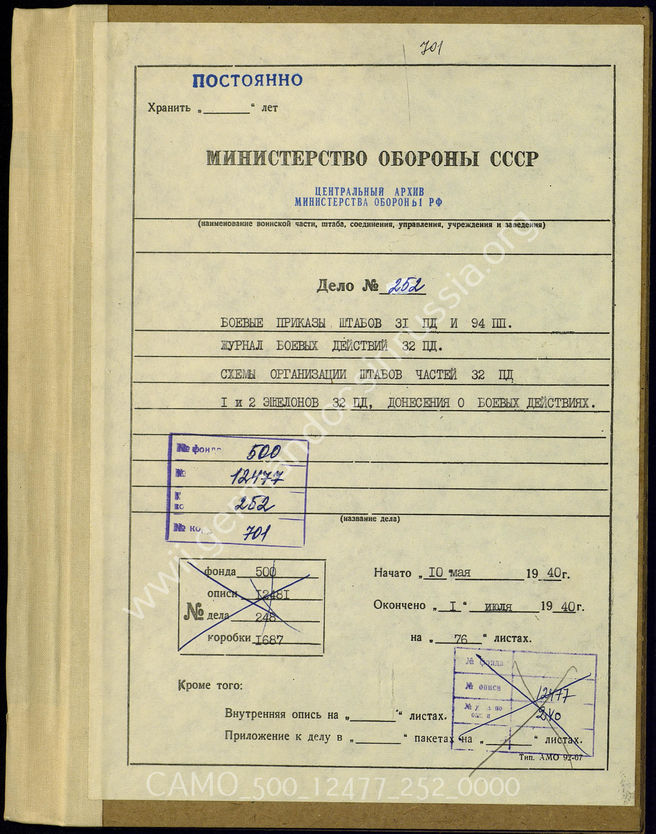 701
ПОСТОЯННО
Хранить „ “ лет
МИНИСТЕРСТВО ОБОРОНЫ СССР
ЦЕНТРАЛЬНЫЙ АРХИВ
МИНИСТЕРСТВА ОБОРОНЫ РФ
(наименование воинской части, штаба, соединения, управления, учреждения и заведения)
Дело № 252
БОЕВЫЕ ПРИКАЗЫ ШТАБОВ 31 ПД И 94 ПП.
ЖУРНАЛ БОЕВЫХ ДЕЙСТВИЙ 32 ПД.
СХЕМЫ ОРГАНИЗАЦИИ ШТАБОВ ЧАСТЕЙ 32 ПД
I и 2 ЭШЕЛОНОВ 32 ПД, ДОНЕСЕНИЯ О БОЕВЫХ ДЕЙСТВИЯХ.
№ фонда 500
№ 12477
252
№ ко 701
(название дела)
фонда 500
описи I248I
№ дела 248
коробки I687
Начато „ 10 “ мая 19 40 г.
Окончено „ I “ июля 19 40 г.
на „ 76 “ листах.
№ фонда
№ описи 12477
240
Кроме того:
Внутренняя опись на „ “ листах.
Приложение к делу в „ “ пакетах на „ “ листах.
Тип. АМО 92-67
www.germandocsinrussia.org
CAMO_500_12477_252_0000